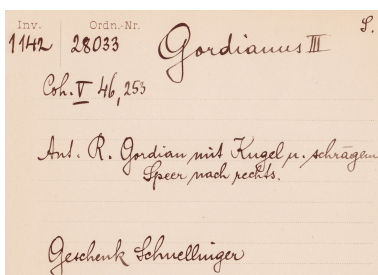 Inv. Ordn.-Nr. S.
1142 28033 Gordianus III
Coh. V 46, 253
Ant. R. Gordian mit Kugel u. schrägem
Speer nach rechts.
Geschenk Schnellinger